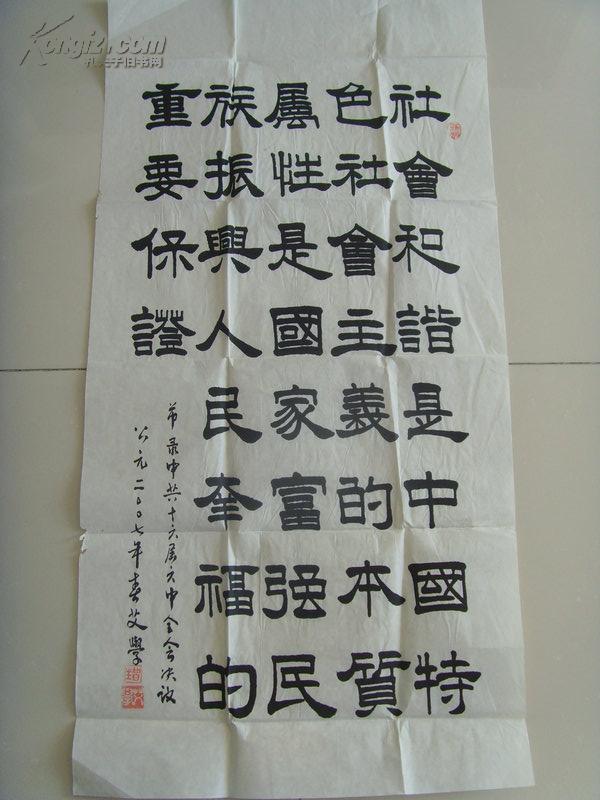 社會和諧是中國特
色社會主義的本質
屬性是國家富强民
族振興人民幸福的
重要保證
节录中共十六届六中全会决议
公元二00七年春艾學
Kongfz.com
孔夫子旧书网